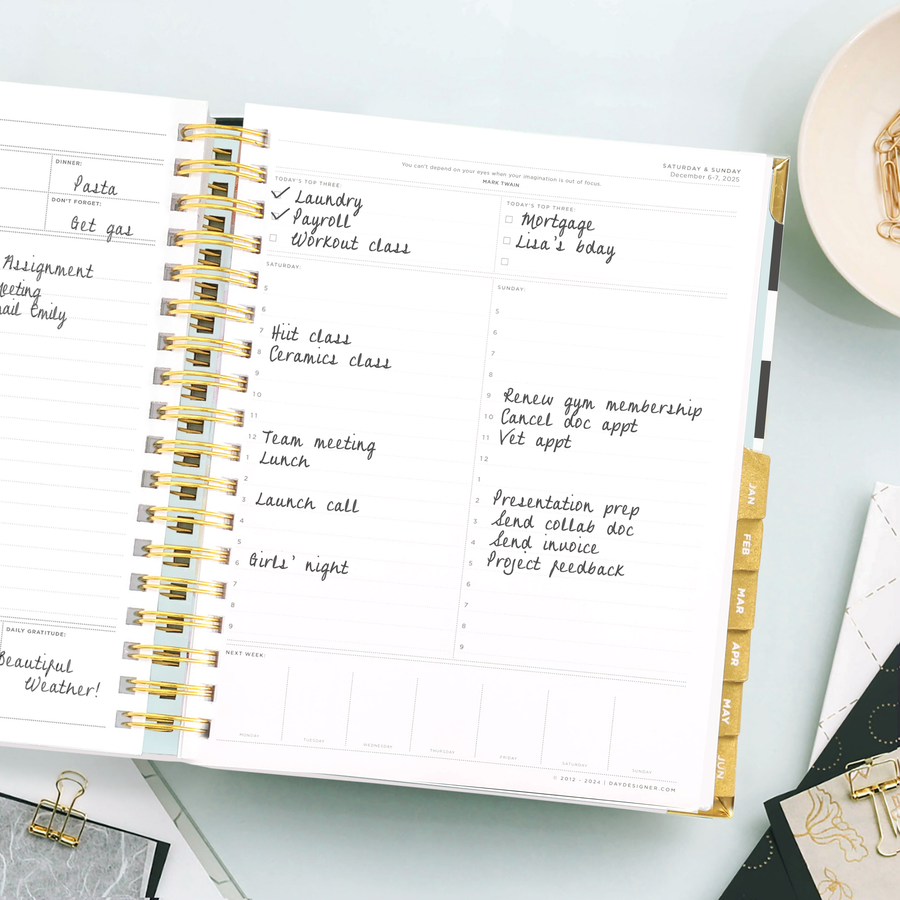 DINNER:
Pasta
DON'T FORGET:
Get gas
Assignment
Meeting
Email Emily
DAILY GRATITUDE:
Beautiful
Weather!
You can't depend on your eyes when your imagination is out of focus.
MARK TWAIN
SATURDAY & SUNDAY
December 6-7, 2025
TODAY'S TOP THREE:
Laundry
Payroll
Workout class
TODAY'S TOP THREE:
Mortgage
Lisa's bday
SATURDAY:
5
6
7 Hiit class
8 Ceramics class
9
10
11
12 Team meeting
1 Lunch
2
3 Launch call
4
5
6 Girls' night
7
8
9
SUNDAY:
5
6
7
8
9 Renew gym membership
10 Cancel doc appt
11 Vet appt
12
1
2 Presentation prep
3 Send collab doc
4 Send invoice
5 Project feedback
6
7
8
9
NEXT WEEK:
MONDAY
TUESDAY
WEDNESDAY
THURSDAY
FRIDAY
SATURDAY
SUNDAY
© 2012 - 2024 | DAYDESIGNER.COM
JAN
FEB
MAR
APR
MAY
JUN